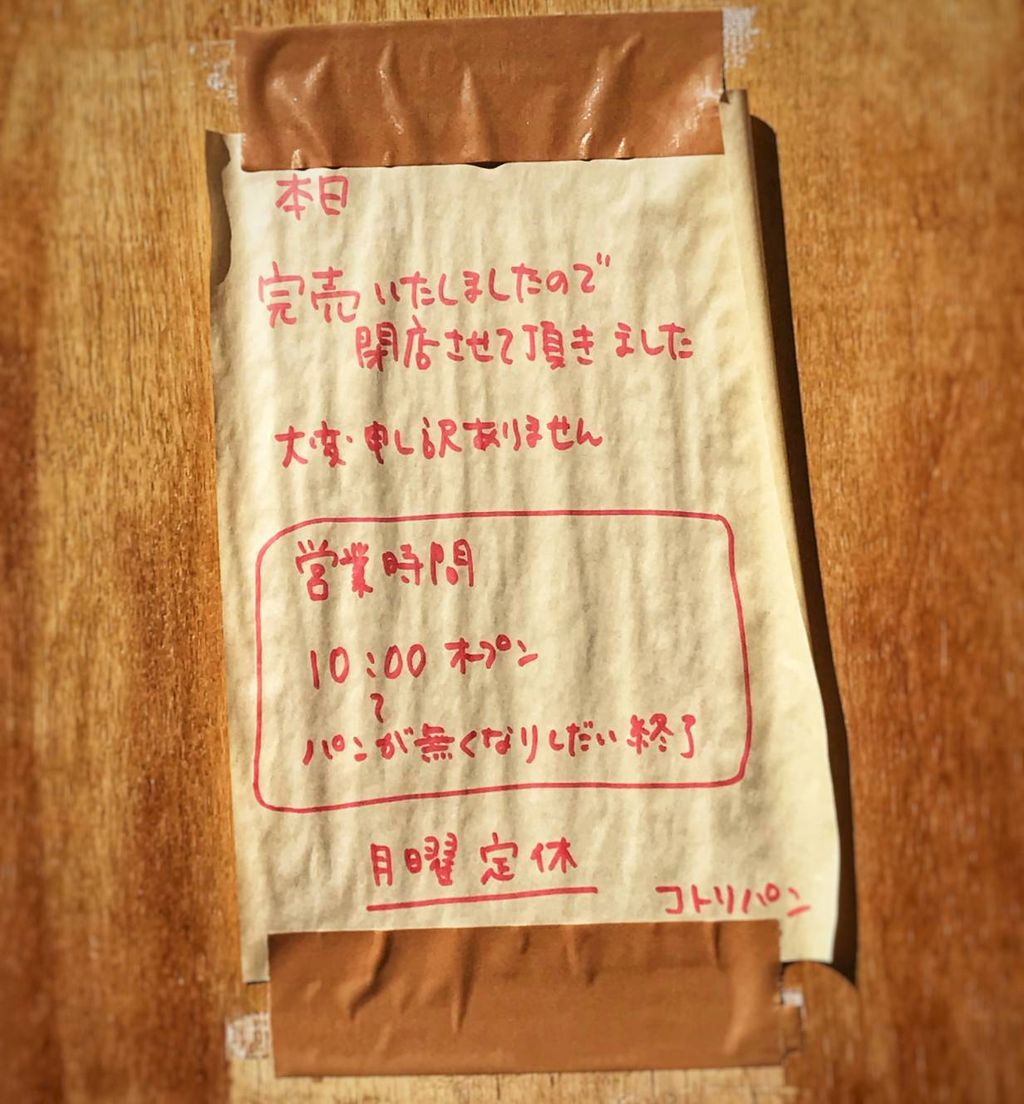 本日
完売いたしましたので
閉店させて頂きました
大変申し訳ありません
営業時間
10:00 オープン
〜
パンが無くなりしだい終了
月曜定休
コトリパン